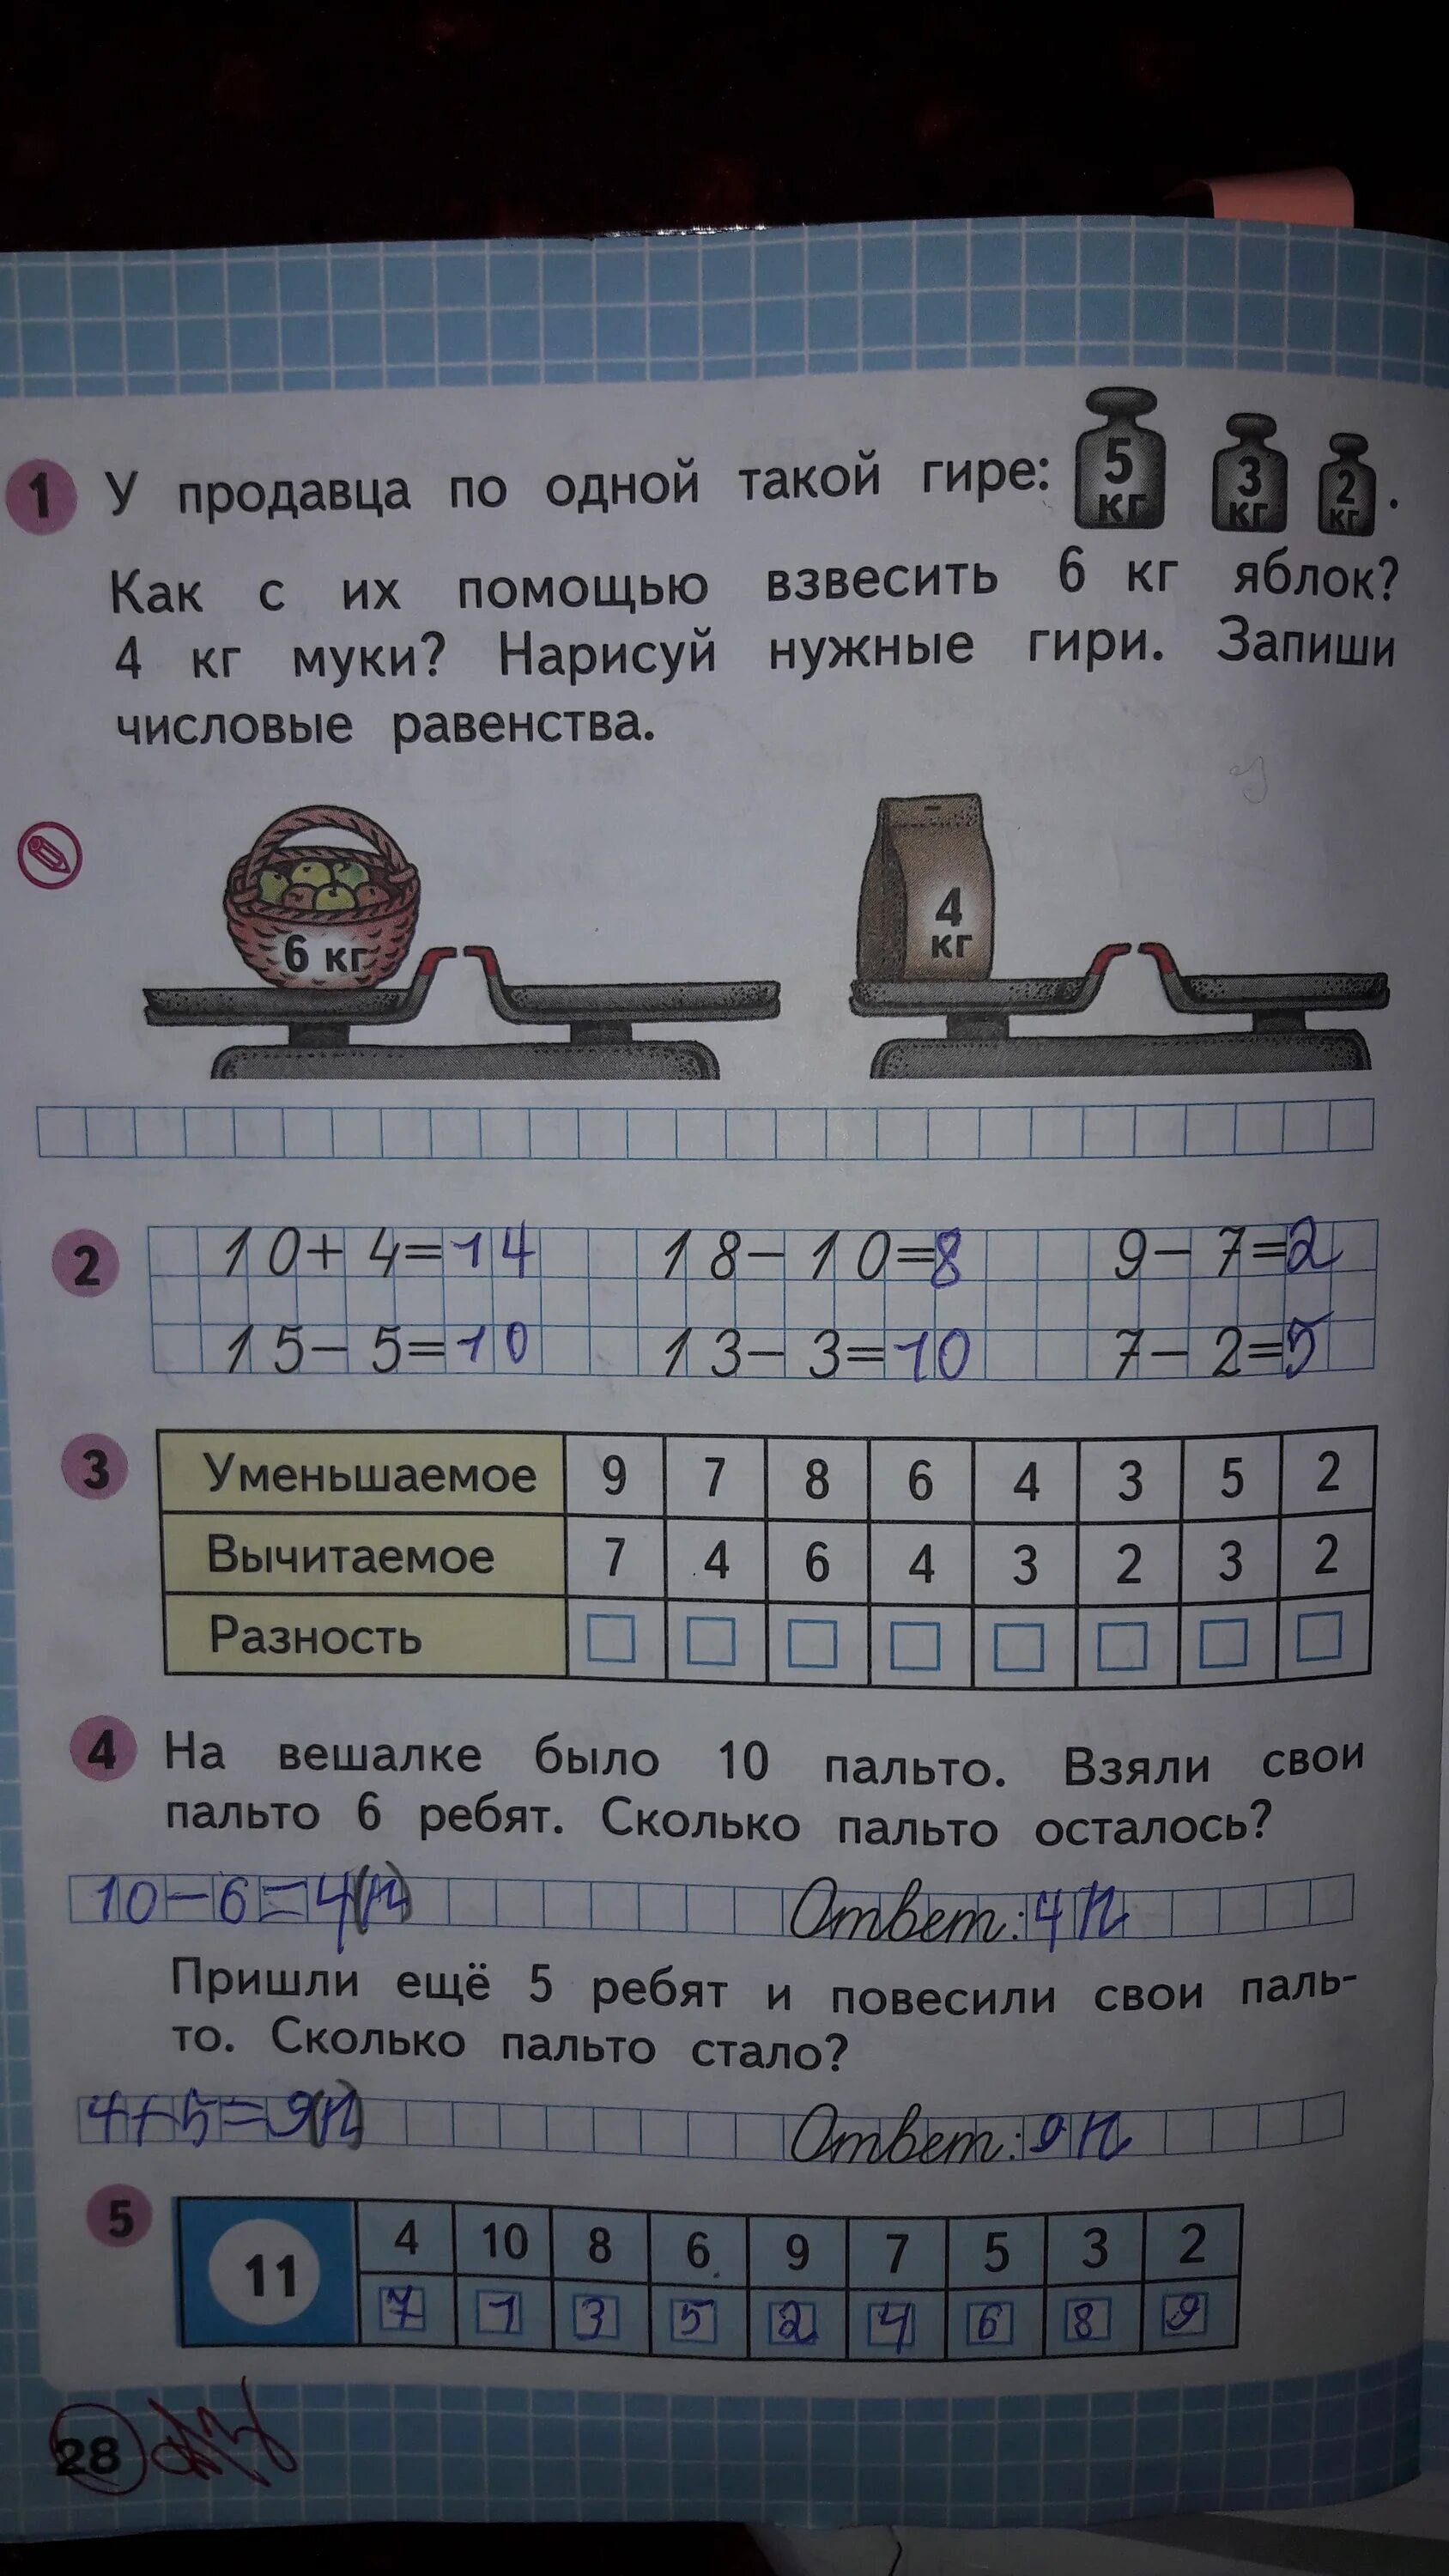 1 У продавца по одной такой гире: 5 кг 3 кг 2 кг .
Как с их помощью взвесить 6 кг яблок?
4 кг муки? Нарисуй нужные гири. Запиши
числовые равенства.
6 кг 4 кг
2 10+4=14 18-10=8 9-7=2
15-5=10 13-3=10 7-2=5
3 Уменьшаемое 9 7 8 6 4 3 5 2
Вычитаемое 7 4 6 4 3 2 3 2
Разность
4 На вешалке было 10 пальто. Взяли свои
пальто 6 ребят. Сколько пальто осталось?
10-6=4(п) Ответ: 4 п
Пришли ещё 5 ребят и повесили свои паль-
то. Сколько пальто стало?
4+5=9(п) Ответ: 9 п
5 11 4 10 8 6 9 7 5 3 2
7 1 3 5 2 4 6 8 9
28